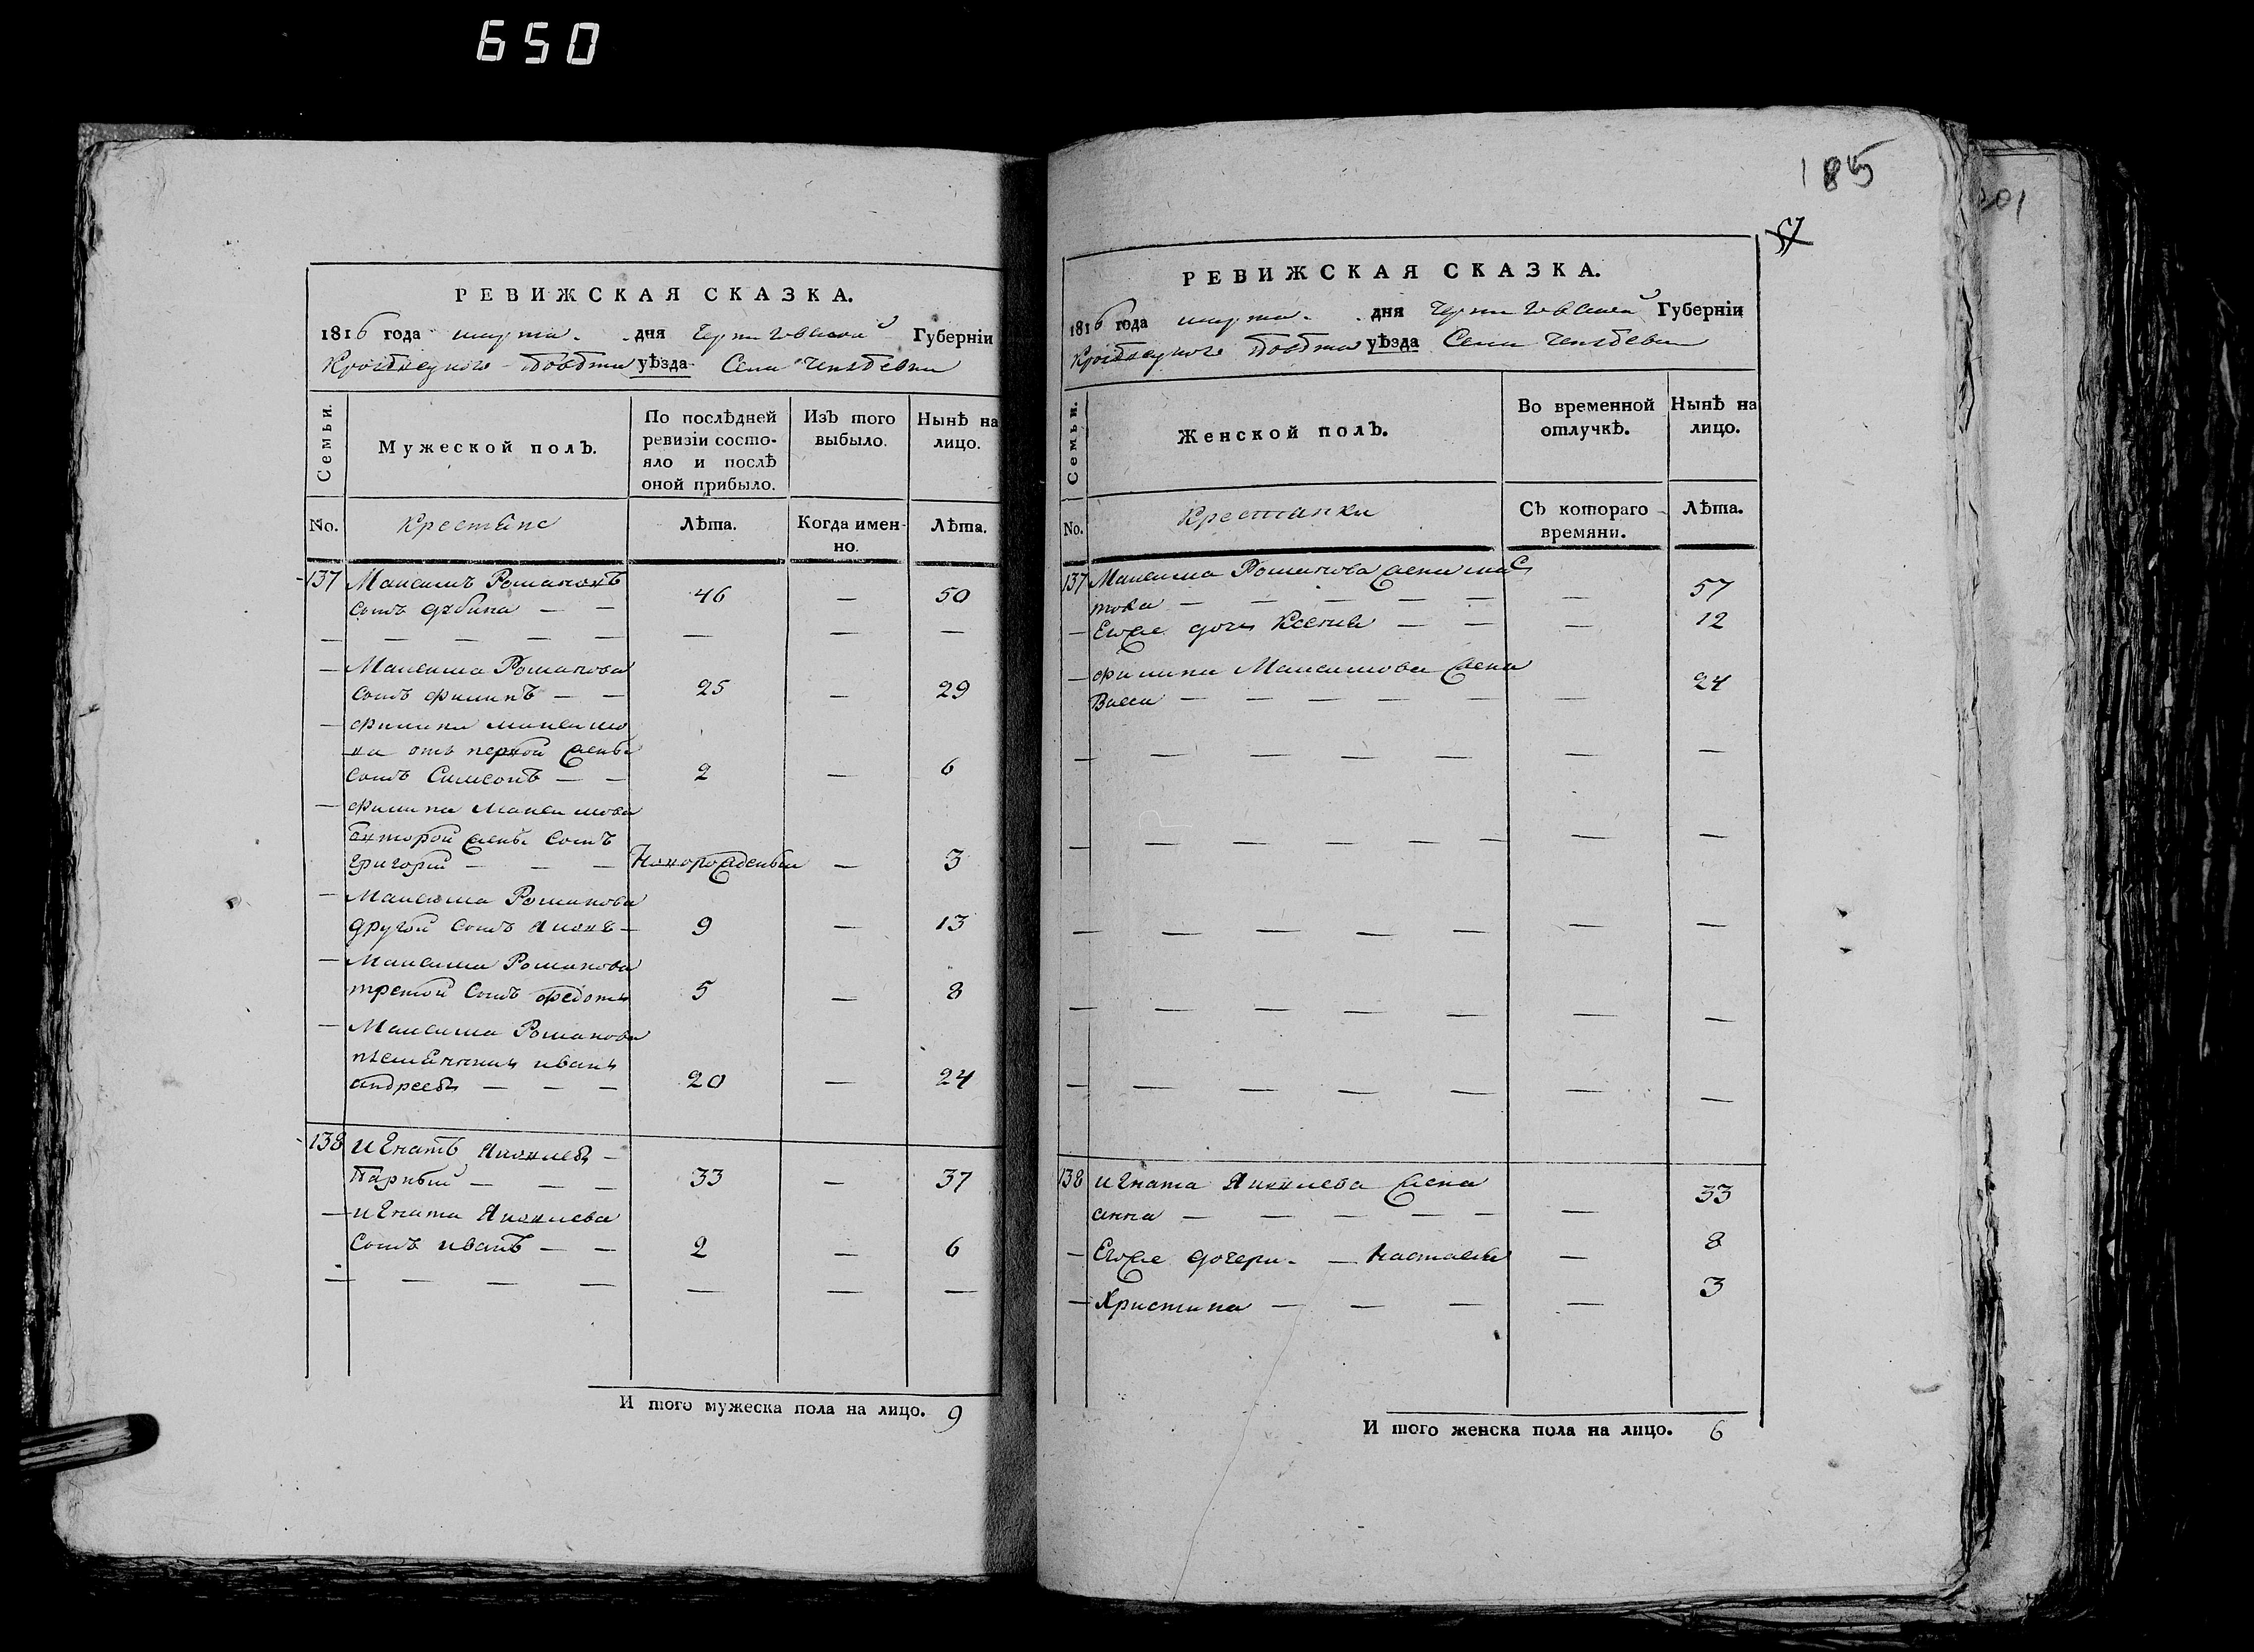 650
РЕВИЖСКАЯ СКАЗКА.
1816 года марта дня Черниговской Губерніи
уѣзда Села
Семьи.
Мужеской полъ.
По послѣдней ревизіи состояло и послѣ оной прибыло.
Изъ того выбыло.
Нынѣ на лицо.
No.
Крестьяне
Лѣта.
Когда именно.
Лѣта.
137 Максимъ Романовъ
сынъ — — 46 — 50
— — — — — — — —
— Максима Романова
сынъ Филипъ — — 25 — 29
— Филипа Максимо
ва отъ первой жены
сынъ Симеонъ — — 2 — 6
— Филипа Максимова
второй жены сынъ
Григорій — — — Новорожденный — 3
— Максима Романова
другой сынъ Яковъ — 9 — 13
— Максима Романова
третой сынъ Федотъ 5 — 8
— Максима Романова
племенникъ иванъ
андреевъ — — — 20 — 24
138 игнатъ Яковлевъ —
— — — 33 — 37
— игната Яковлева
сынъ иванъ — — 2 — 6
— — — — — — —
И того мужеска пола на лицо. 9
185
57
РЕВИЖСКАЯ СКАЗКА.
1816 года марта дня Черниговской Губерніи
уѣзда Села
Семьи.
Женской полъ.
Во временной отлучкѣ.
Нынѣ на лицо.
No.
Крестянки
Съ котораго времяни.
Лѣта.
137 Максима Романова жена
— — — — — — 57
— Егоже дочь Ксенія — — — 12
— Филипа Максимова жена
Васса — — — — — — 24
— — — — — — —
— — — — — — — —
— — — — — — — —
— — — — — — — —
— — — — — — — —
138 игната Яковлева жена
анна — — — — — — 33
— Егоже дочери — Настасія — 8
— Христина — — — — 3
И того женска пола на лицо. 6
201